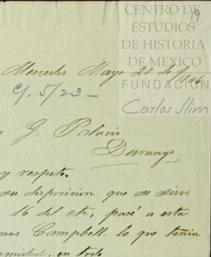 CENTRO DE
ESTUDIOS
DE HISTORIA
DE MEXICO
FUNDACIÓN
Carlos Slim
19
Mercedes Mayo 20 de
C/. 5/23-
G. Palacio
Durango
y respeto.
su disposicion que se sir
16 del cte, pasé a esta
mas Campbell, lo que tenia
en todo